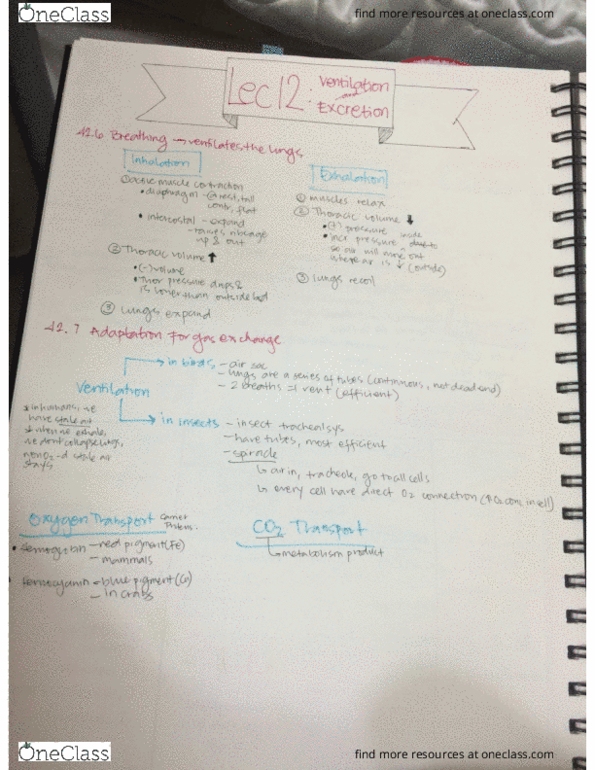 OneClass
find more resources at oneclass.com
Lec 12: Ventilation
Excretion
42.6 Breathing → ventilates the lungs
Inhalation
① active muscle contraction
• diaphragm - @ rest, tall
contr, flat
• intercostal - expand
- raises ribcage
up & out
② Thoracic volume ↑
• (-) volume
• Thor pressure drops &
is lower than outside
③ lungs expand
Exhalation
① muscles relax
② Thoracic volume ↓
• (+) pressure
• incr pressure, due to
so air will move out
where air is ↓ (outside)
③ lungs recoil
42.7 Adaptation for gas exchange
Ventilation
→ in birds - air sac
- lungs are a series of tubes (continuous, not dead end)
- 2 breaths = 1 vent (efficient)
* in humans, we
have stale air
when we exhale,
we dont collapse lungs,
non O₂-d stale air
stays
→ in insects - insect tracheal sys
- have tubes, most efficient
- spiracle
↳ air in, tracheole, go to all cells
↳ every cell have direct O₂ connection (↑O₂ conc in cell)
Oxygen Transport
• Hemoglobin - red pigment (Fe)
- mammals
• Hemocyanin - blue pigment (Cu)
- in crabs
CO₂ Transport
↳ metabolism product
OneClass
find more resources at oneclass.com